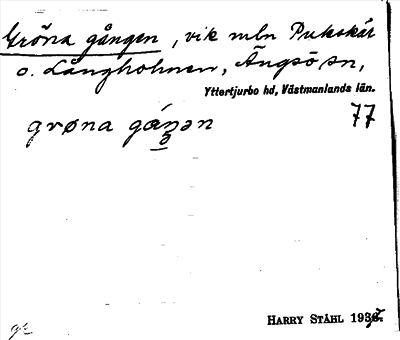 Gröna gången, vik mln Pukskär
o. Långholmen, Ängsö sn,
Yttertjurbo hd, Västmanlands län.
gröna gáŋən 77
HARRY STÅHL 1937.